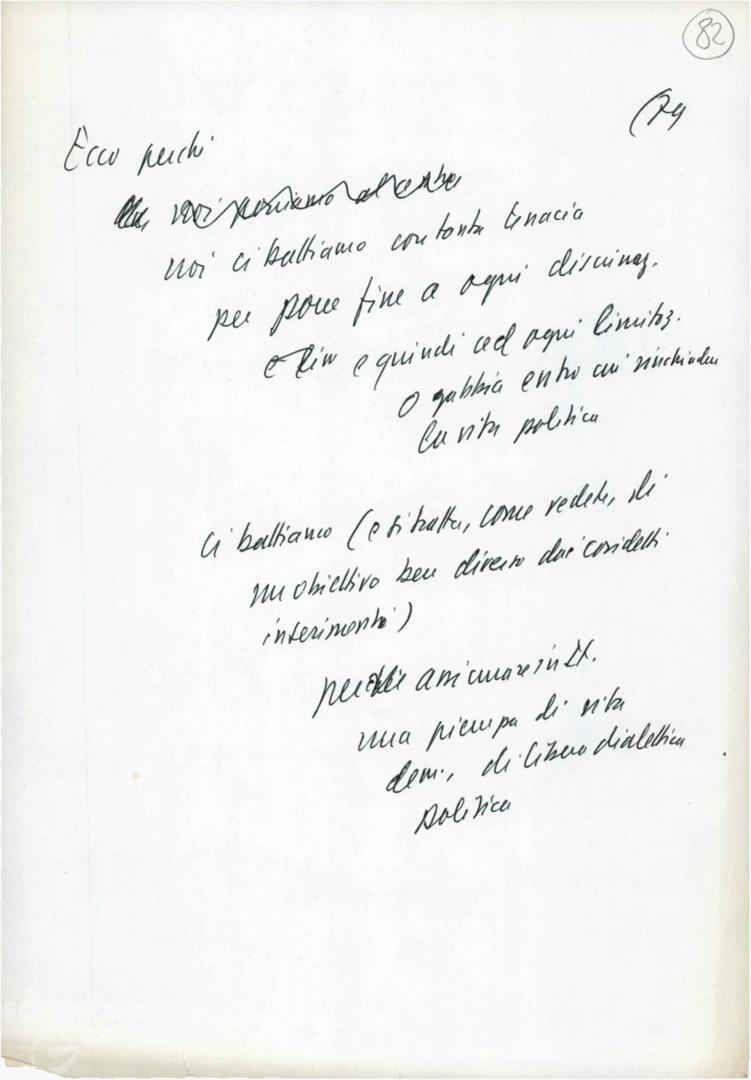 82
(79
Ecco perché
noi poniamo al centro
noi ci battiamo con tanta tenacia
per porre fine a ogni discriminaz.
e lim e quindi ad ogni limitaz.
o gabbia entro cui rinchiudere
la vita politica
ci battiamo (e si tratta, come vedete, di
un obiettivo ben diverso dai cosidetti
inserimenti)
per assicurare in It.
una pienezza di vita
dem., di libera dialettica
politica